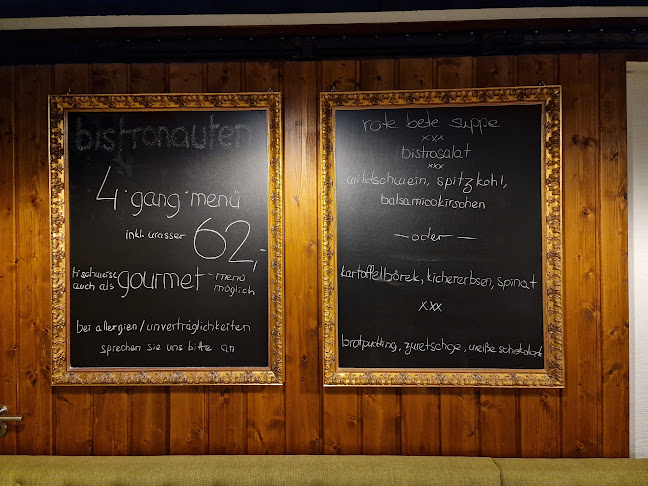 bistronauten
4-gang-menü
inkl. wasser 62,-
tischweise
auch als gourmet-menü
möglich
bei allergien/unverträglichkeiten
sprechen sie uns bitte an
rote bete suppe
xxx
bistrosalat
xxx
wildschwein, spitzkohl,
balsamicokirschen
— oder —
kartoffelbörek, kichererbsen, spinat
xxx
brotpudding, zwetschge, weiße schokolade